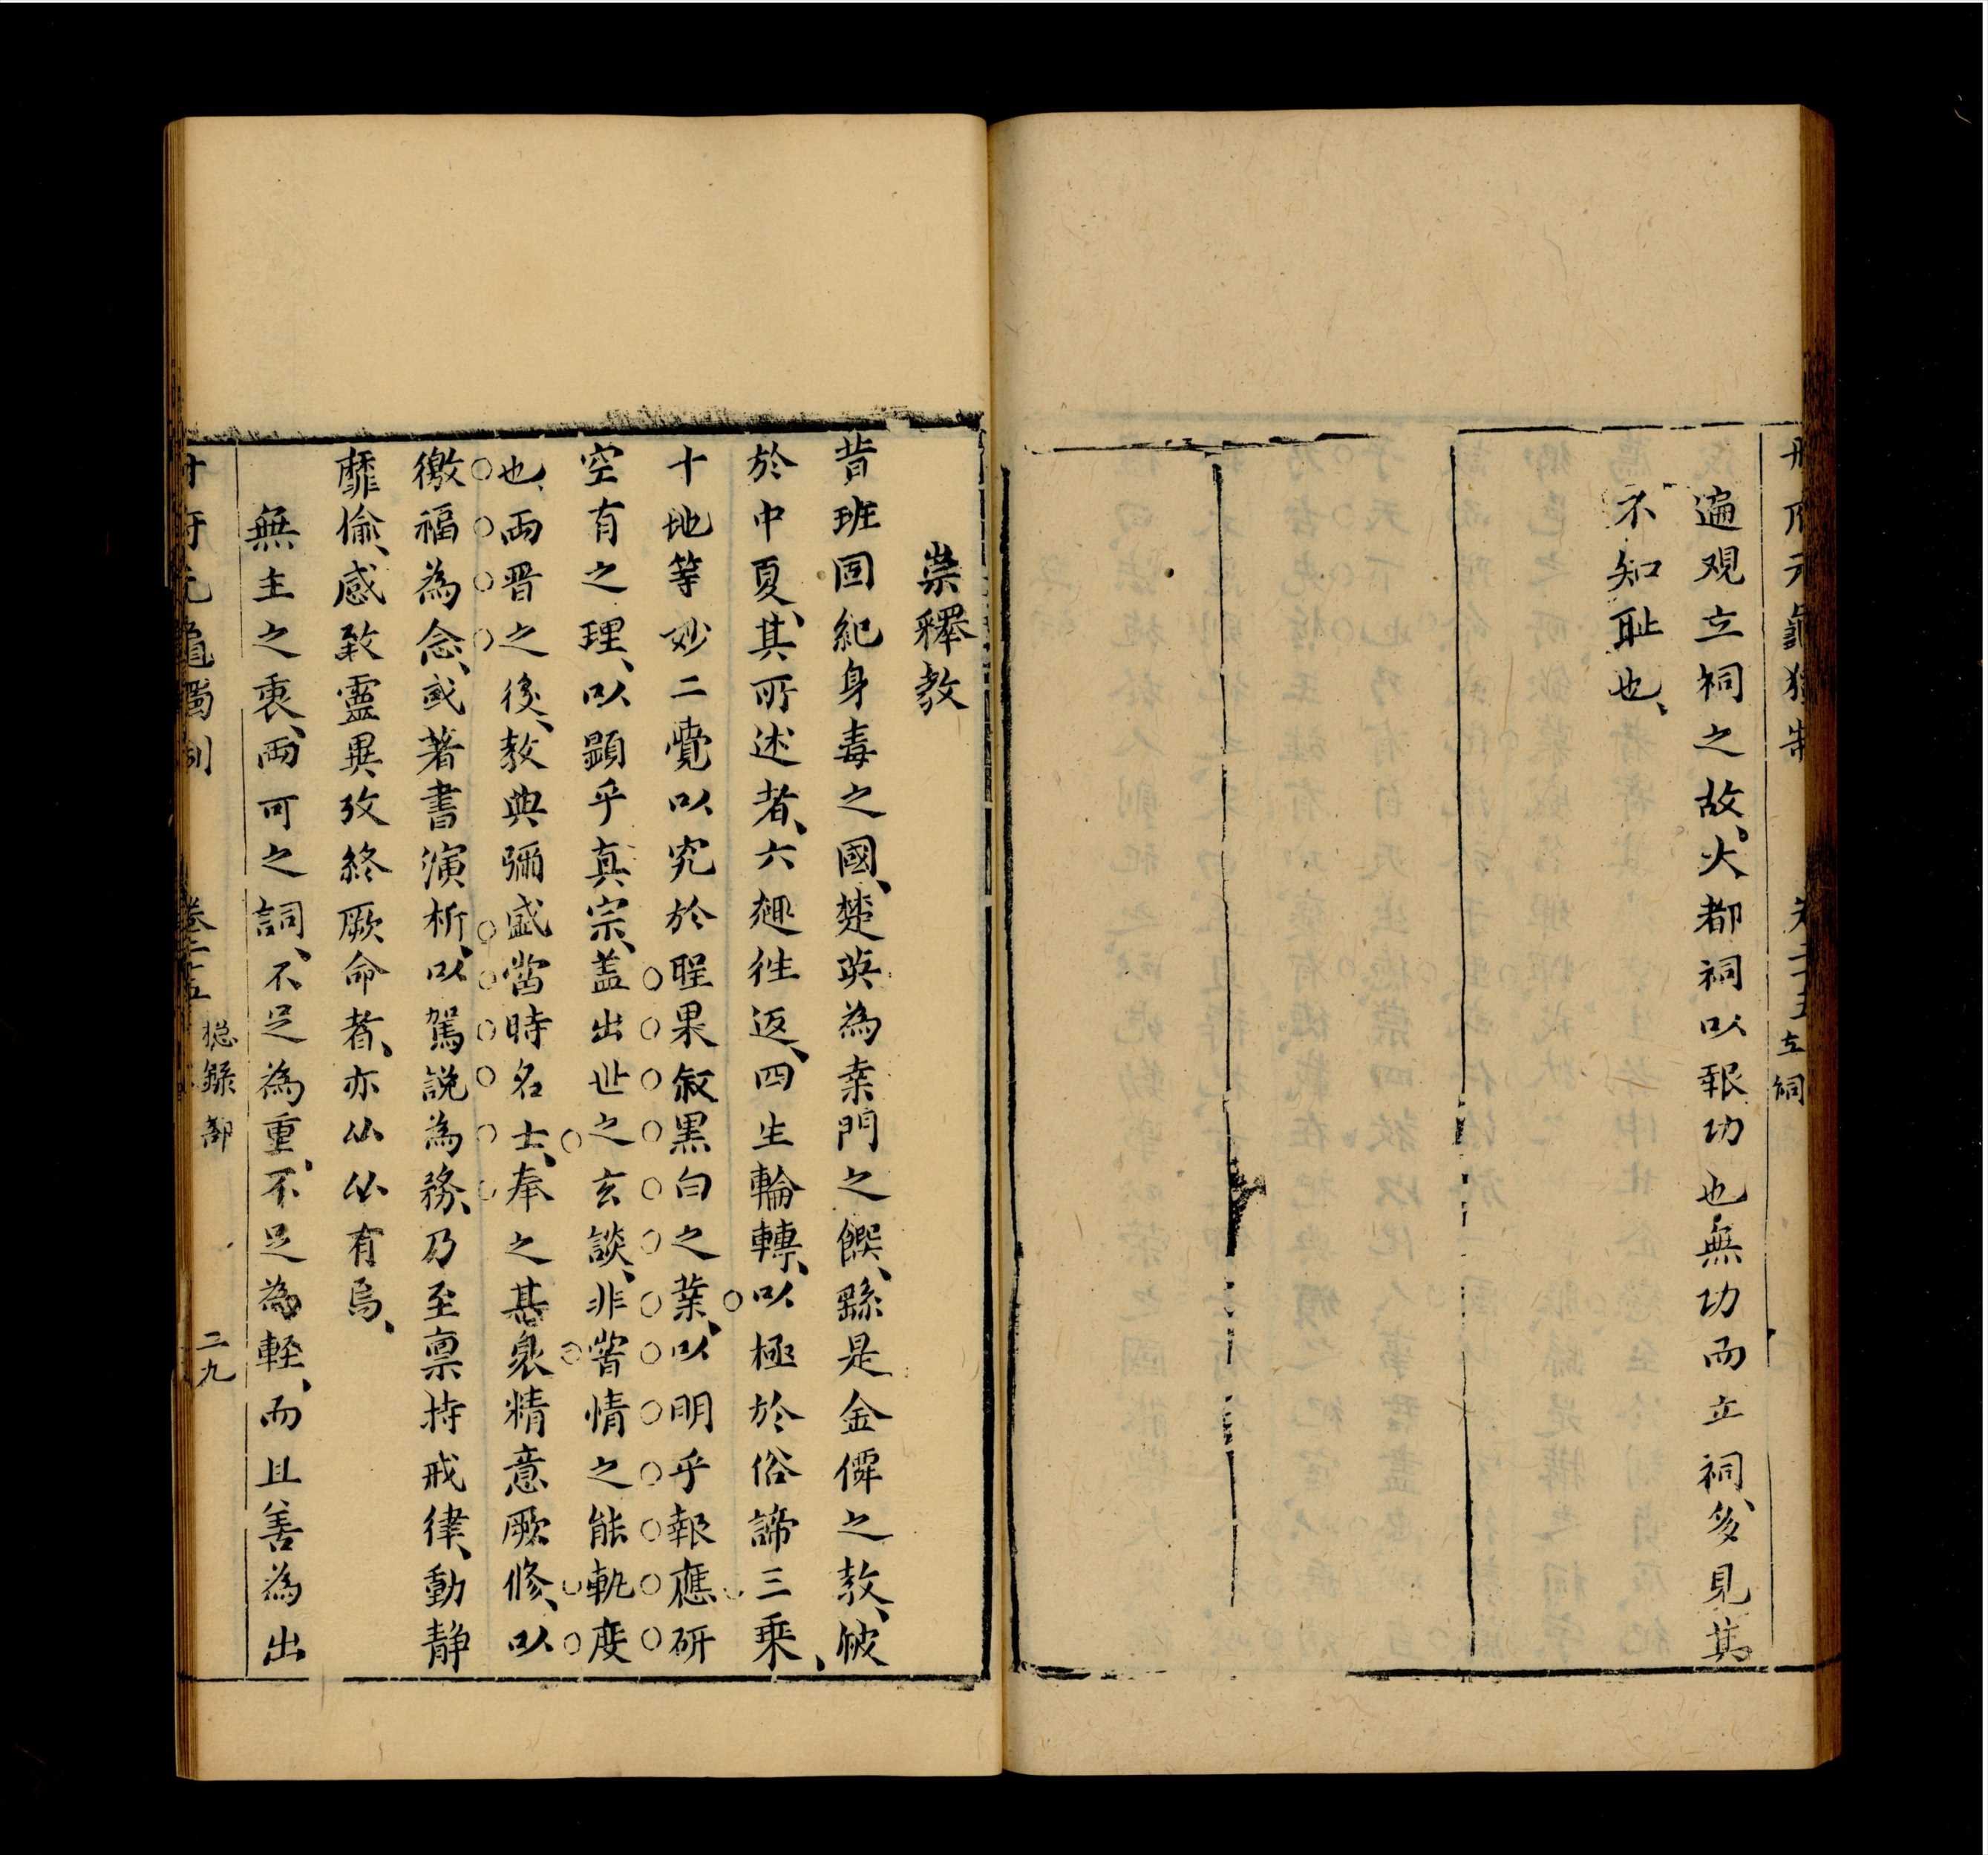 冊府元龜獨制
卷二十五
立祠
遍观立祠之故、大都祠以報功也無功而立祠、多見其
不知耻也、
崇釋教
昔班固紀身毒之國、楚英為桑門之饌、繇是金僊之教、被
於中夏、其所述者、六趣徃返、四生輪轉、以極於俗諦三乗、
十地等妙二覺以究於聖果叙黒白之業、以明乎報應研
空有之理、以顕乎真宗、盖出世之玄談、非嘗情之能軌度
也、兩晋之後、教典彌盛當時名士、奉之甚衆精意厥修、以
徼福為念、或著書演析、以駕說為務、乃至禀持戒律、動静
靡偷、感致靈異攷終厥命者、亦㕥㕥有焉、
無主之衷、兩可之詞、不足為重、不足為軽、而且善為出
冊府元龜獨制
卷二十五
總録部
二九